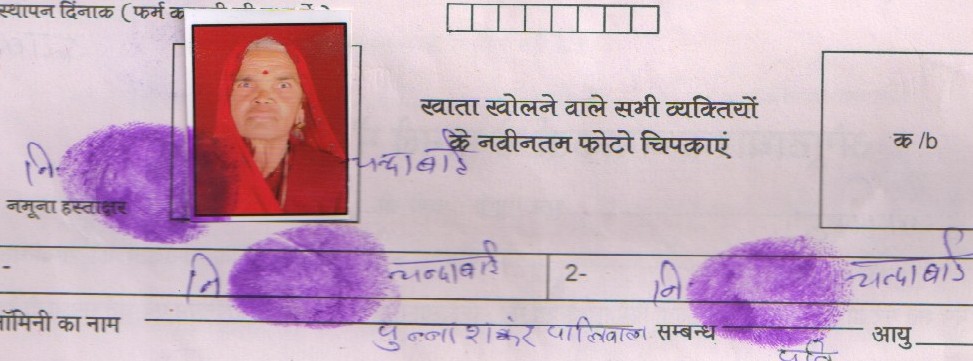 स्थापन दिनाक (फर्म
खाता खोलने वाले सभी व्यक्तियों
के नवीनतम फोटो चिपकाएं
क /b
नि. चन्दाबाई
नमूना हस्ताक्षर
नि चन्दाबाई 2- नि. चन्दाबाई
नॉमिनी का नाम शकंर पालिवाल सम्बन्ध पति आयु